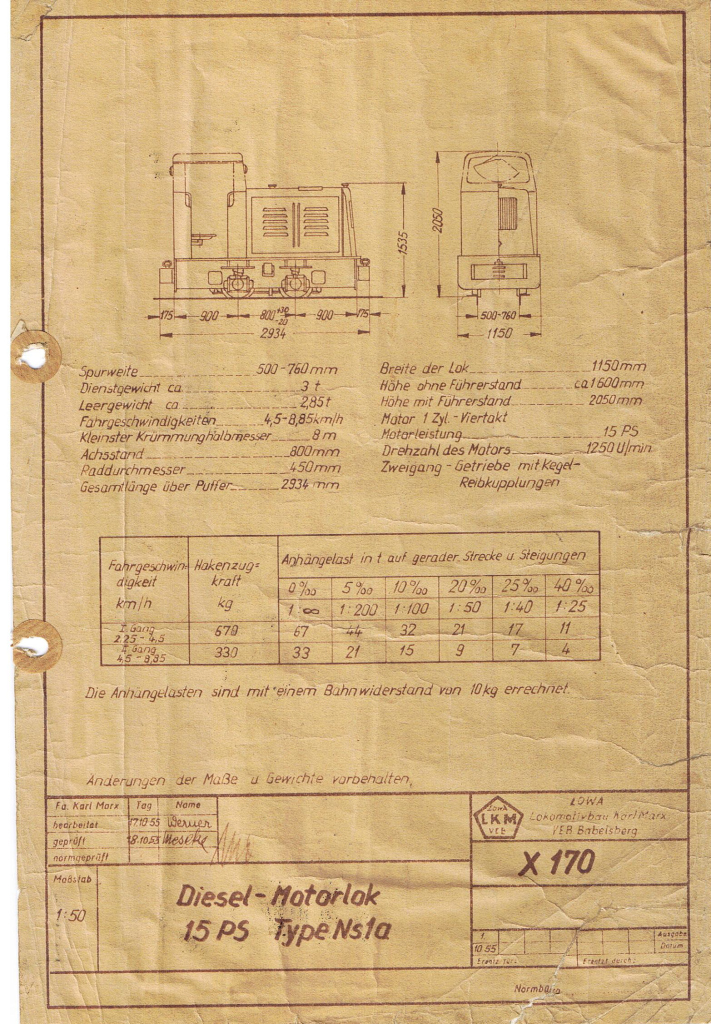 1535
2050
175 900 800 +30 -20 900 175
2934
500-760
1150
Spurweite 500-760 mm
Dienstgewicht ca 3 t
Leergewicht ca 2,85 t
Fahrgeschwindigkeiten 4,5-8,85 km/h
Kleinster Krümmunghalbmesser 8 m
Achsstand 800 mm
Raddurchmesser 450 mm
Gesamtlänge über Puffer 2934 mm
Breite der Lok 1150 mm
Höhe ohne Führerstand ca 1600 mm
Höhe mit Führerstand 2050 mm
Motor 1 Zyl.-Viertakt
Motorleistung 15 PS
Drehzahl des Motors 1250 U/min
Zweigang-Getriebe mit Kegel-
Reibkupplungen
Fahrgeschwin-digkeit km/h Hakenzug-kraft kg Anhängelast in t auf gerader Strecke u. Steigungen
0‰ 5‰ 10‰ 20‰ 25‰ 40‰
1:∞ 1:200 1:100 1:50 1:40 1:25
I. Gang 2,25 - 4,5 670 67 44 32 21 17 11
II. Gang 4,5 - 8,85 330 33 21 15 9 7 4
Die Anhängelasten sind mit einem Bahnwiderstand von 10kg errechnet.
Änderungen der Maße u. Gewichte vorbehalten,
Fa. Karl Marx Tag Name
bearbeitet 17.10.55 Werner
geprüft 18.10.55
normgeprüft
Maßstab
1:50
Diesel-Motorlok
15 PS Type Ns1a
LOWA
LKM
VEB
LOWA
Lokomotivbau Karl Marx
VEB Babelsberg
X 170
1 Ausgabe
10.55 Datum
Ersatz für: Ersetzt durch:
Normbüro